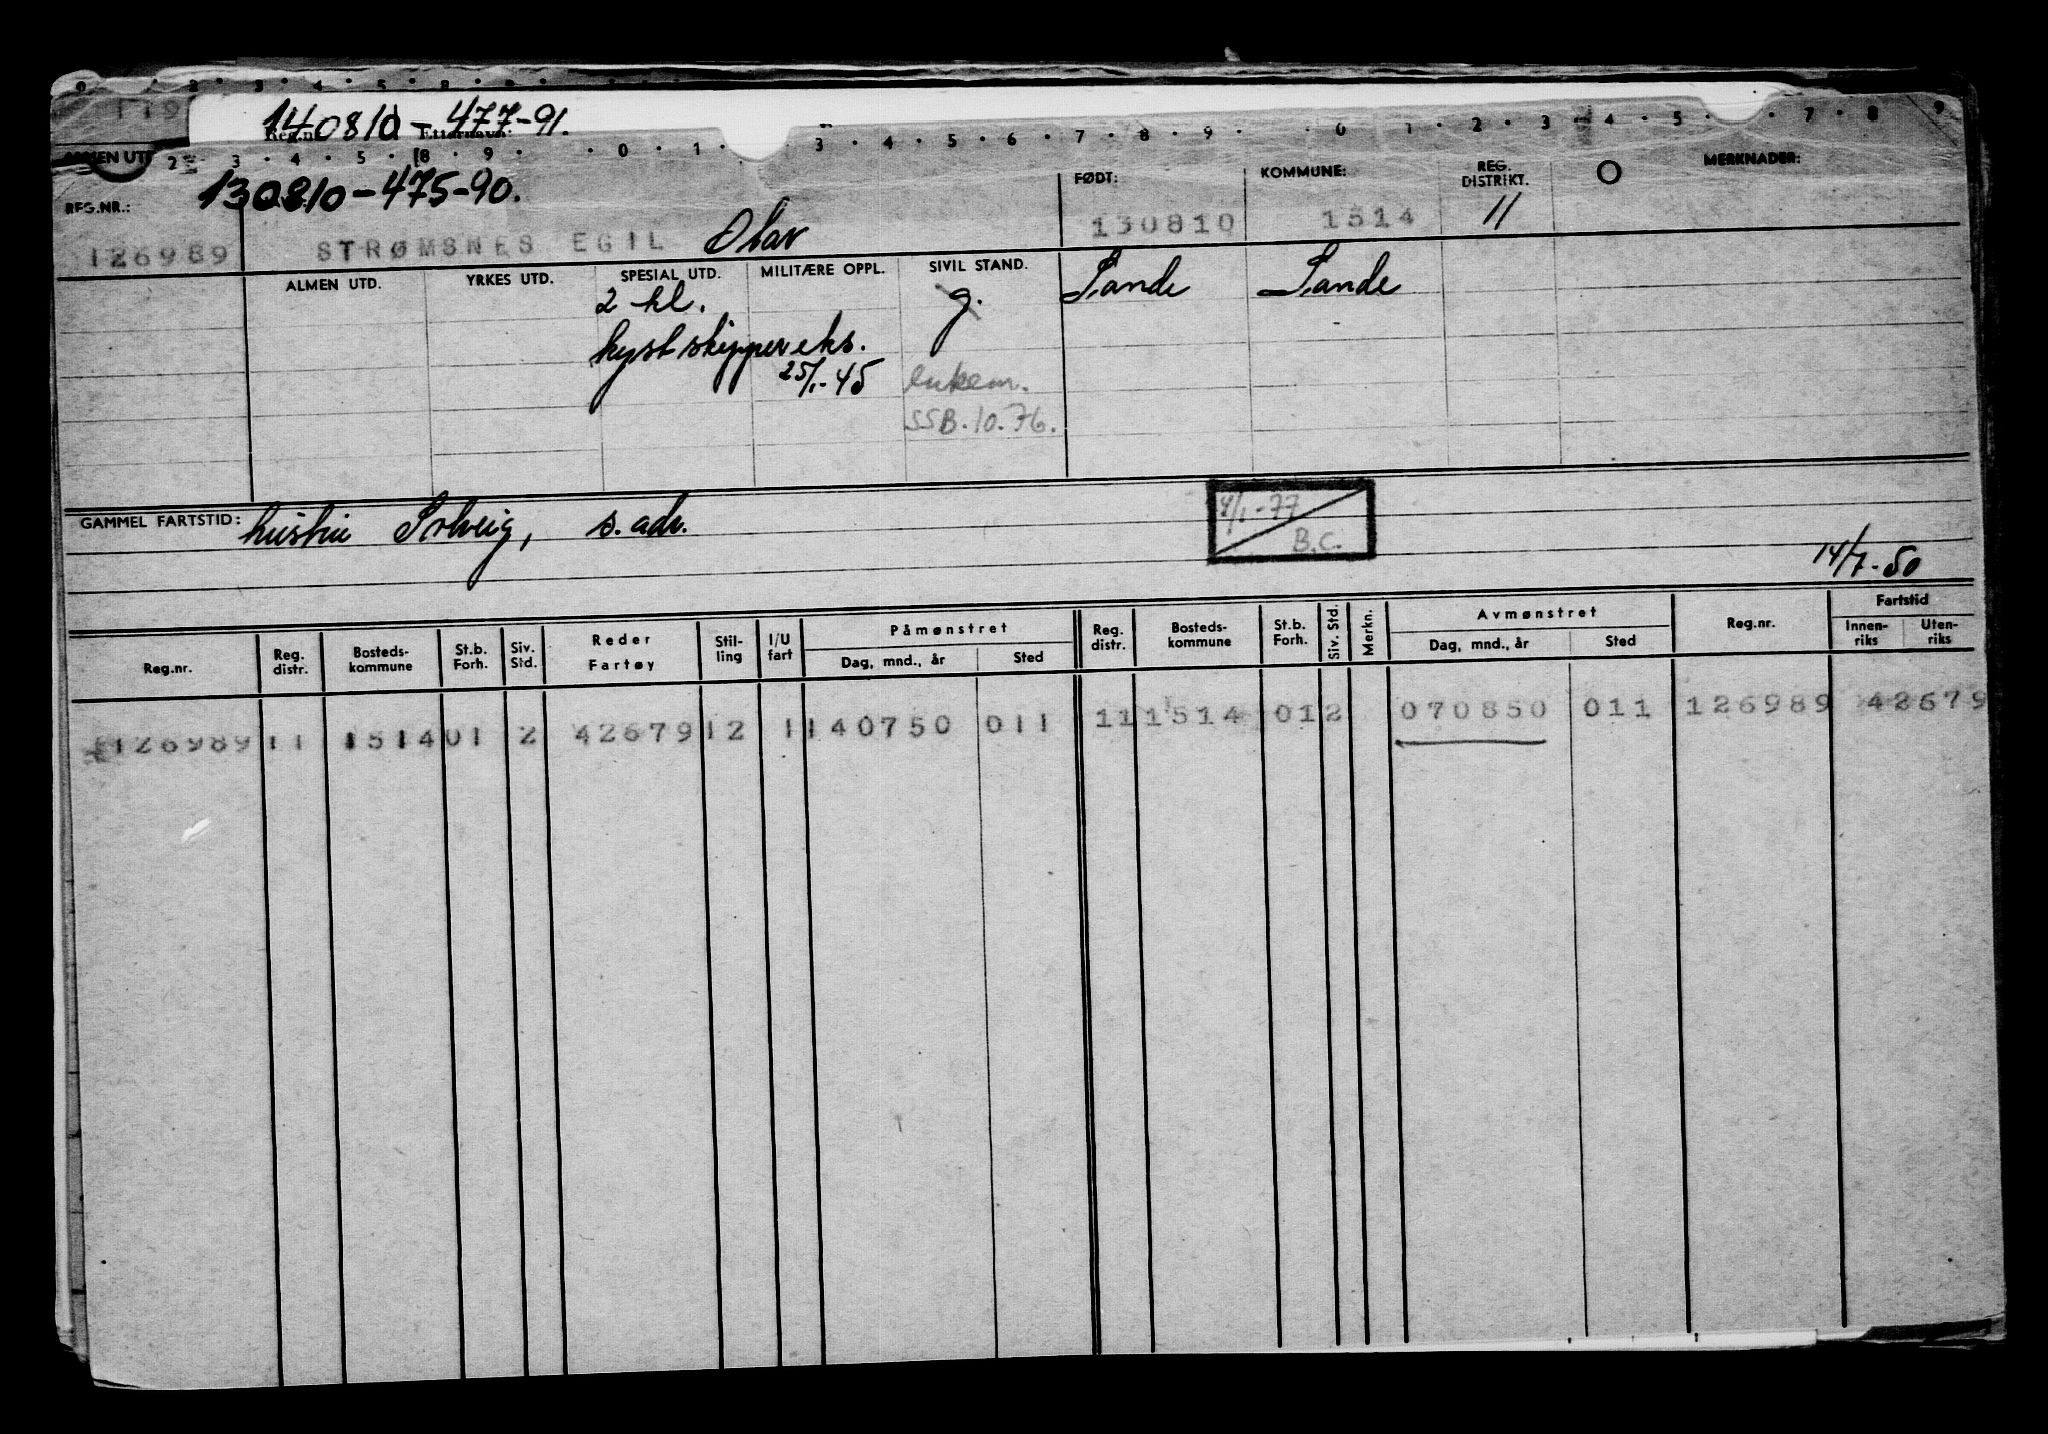 140810-477-91.
Reg.nr. Etternavn:
ALMEN UTD
130810-475-90.
REG.NR.: FØDT: KOMMUNE: REG. DISTRIKT. MERKNADER:
126989 STRØMSNES EGIL Olav 130810 1514 11
ALMEN UTD. YRKES UTD. SPESIAL UTD. MILITÆRE OPPL. SIVIL STAND. Sande Sande
2 kl. g.
kystskippereks.
25/1-45 enkem.
SSB.10.76.
GAMMEL FARTSTID: hustru Solveig, s. adr. 4/1-77
B.C.
14/7-50
Reg.nr. Reg. distr. Bosteds-kommune St.b. Forh. Siv. Std. Reder Fartøy Stil-ling I/U fart Påmønstret Dag, mnd., år Sted Reg. distr. Bosteds-kommune St.b. Forh. Siv. Std. Merkn. Avmønstret Dag, mnd., år Sted Reg.nr. Fartstid Innen-riks Uten-riks
126989 11 1514 01 2 42679 12 1 140750 011 11 1514 01 2 070850 011 126989 42679